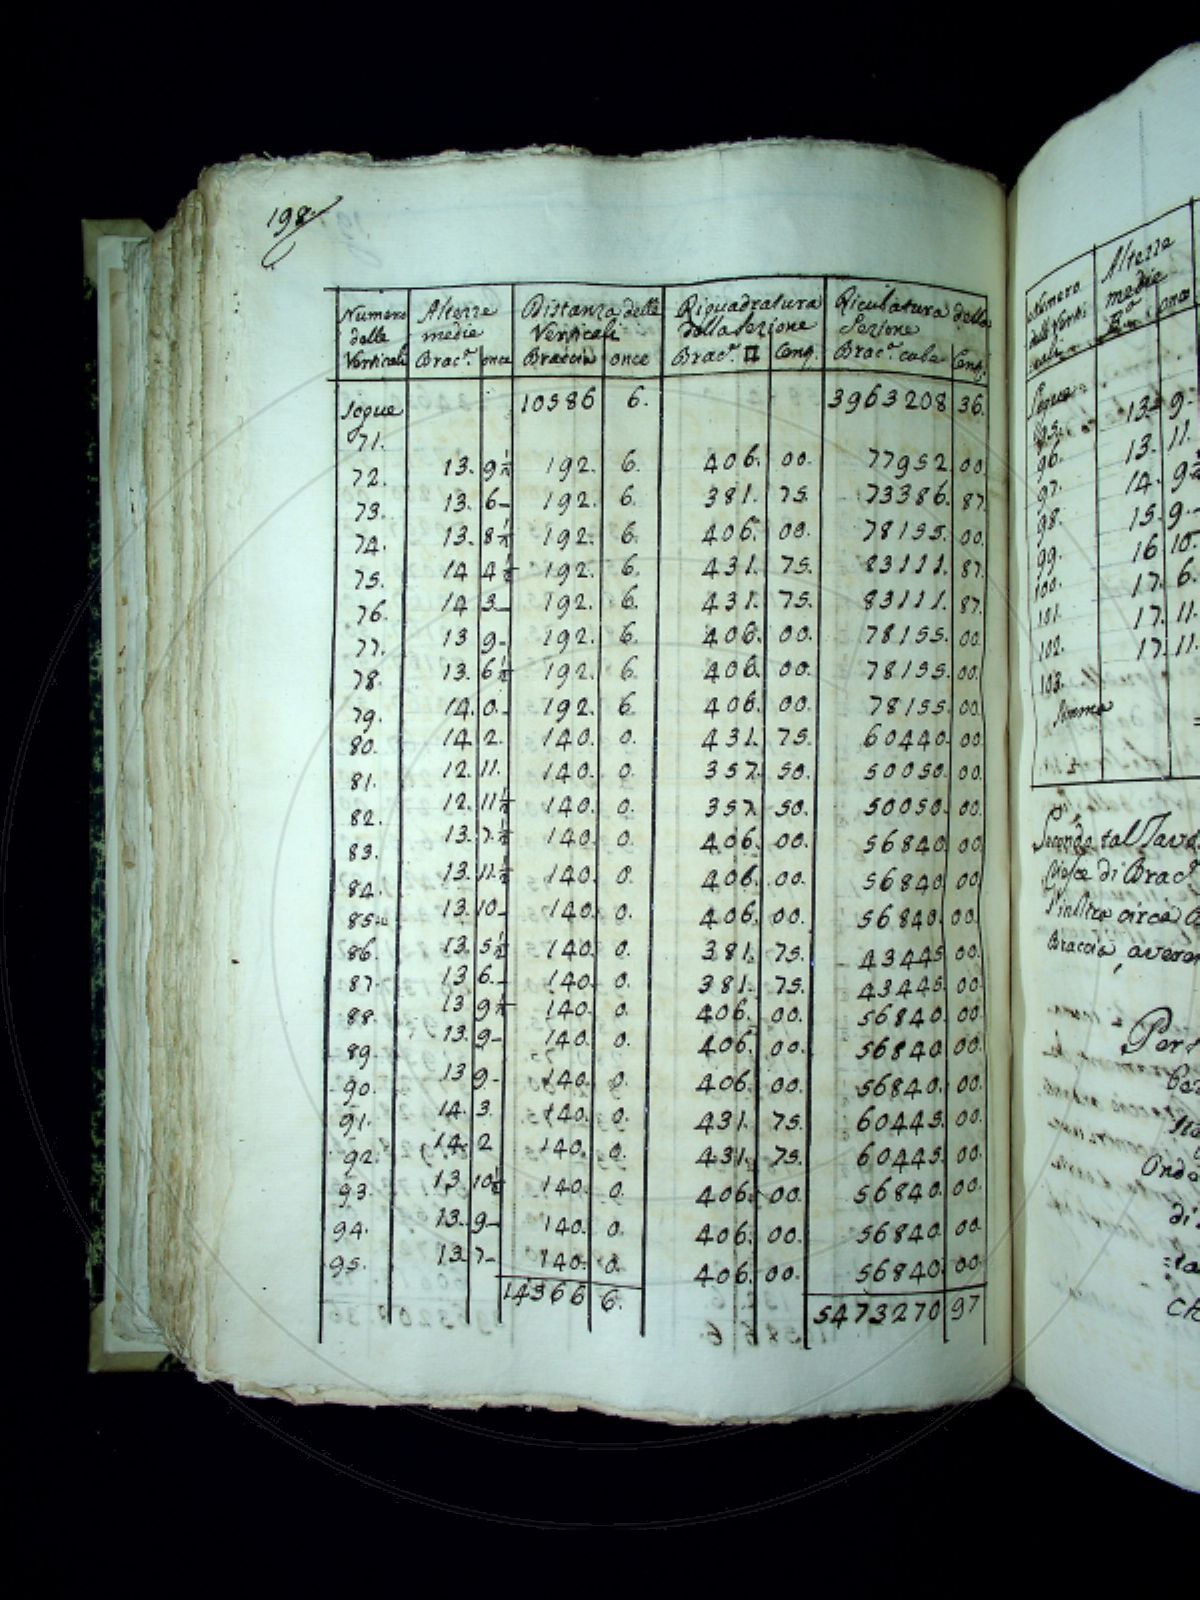 198
Numero delle Verticali | Alterre medie Brac.ᵃ once | Distanza delle Verticali Braccia once | Riquadratura della Sezione Brac.ᵃ □ Cenq. | Riculatura della Sezione Brac.ᵃ cube Cenq.
Segue 10586 6. 3963208 36.
71.
72. 13. 9½ 192. 6. 406. 00. 77952 00
73. 13. 6- 192. 6. 381. 75. 73386. 87.
74. 13. 8½ 192. 6. 406. 00. 78155. 00.
75. 14 4½ 192. 6. 431. 75. 83111. 87.
76. 14 3- 192. 6. 431. 75. 83111. 87.
77. 13 9- 192. 6. 406. 00. 78155. 00
78. 13. 6½ 192. 6. 406. 00. 78155. 00.
79. 14. 0- 192. 6 406. 00. 78155. 00.
80. 14 2. 140. 0. 431. 75. 60440. 00.
81. 12. 11. 140. 0. 357. 50. 50050. 00.
82. 12. 11½ 140. 0. 357. 50. 50050. 00.
83. 13. 7½ 140. 0. 406. 00. 56840 00.
84. 13. 11½ 140. 0. 406. 00. 56840 00.
85. 13. 10- 140. 0. 406. 00. 56840. 00.
86. 13. 5½ 140. 0. 381. 75. 43445 00.
87. 13 6- 140. 0. 381. 75. 43445. 00.
88. 13 9½ 140. 0. 406. 00. 56840. 00.
89. 13. 9- 140. 0. 406. 00. 56840 00.
90. 13 9- 140. 0. 406. 00. 56840. 00.
91. 14. 3. 140. 0. 431. 75. 60445. 00.
92. 14. 2 140. 0. 431. 75. 60445. 00.
93. 13. 10½ 140. 0. 406. 00. 56840. 00.
94. 13. 9- 140. 0. 406. 00. 56840 00.
95. 13. 7- 140. 0. 406. 00. 56840. 00.
14366 6. 5473270 97
Numero dell Verticali | Alterre medie B.ᵃ once
Segue
95. 13. 9-
96. 13. 11.
97. 14. 9½
98. 15. 9-
99. 16 10.
100. 17. 6.
101. 17. 11.
102. 17. 11.
103.
Somma
Secondo tal Tavo
di Brac.ᵃ
circa
Braccia, averem
Per
Onde
di